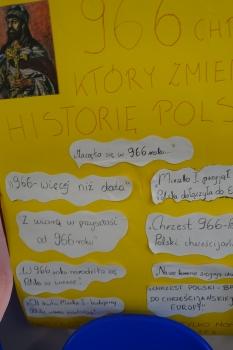 966 CH
KTÓRY ZMIE
HISTORIĘ POLS
„Zaczęło się w 966 roku..."
„966 - więcej niż data"
„Mieszko I przyjął
Polska dołączyła do E
Z wiarą w przyszłość
od 966 roku
„Chrzest 966-
Polski chrześcijańs
„W 966 roku narodziła się
Polska w wierze"
„Nasze korzenie sięgają
„CHRZEST POLSKI - B
DO CHRZEŚCIJAŃSKIEJ
EUROPY"
„Od chrztu Mieszka I - budujemy
TYLKO